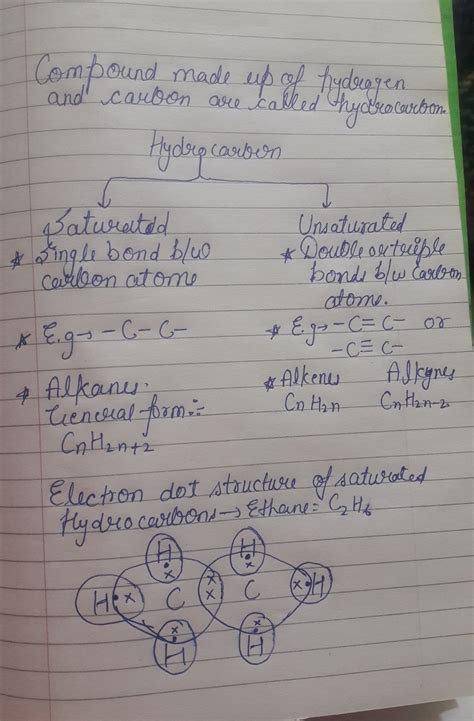 Compound made up of hydrogen
and carbon are called hydrocarbon
Hydrocarbon
Saturated
* Single bond b/w
carbon atoms
* E.g → -C-C-
* Alkanes.
General form :-
CnH2n+2
Unsaturated
* Double or triple
bonds b/w Carbon
atoms.
* E.g → -C=C- or
-C≡C-
* Alkenes Alkynes
CnH2n CnH2n-2
Electron dot structure of saturated
Hydrocarbons → Ethane = C2H6
H H
H C C H
H H